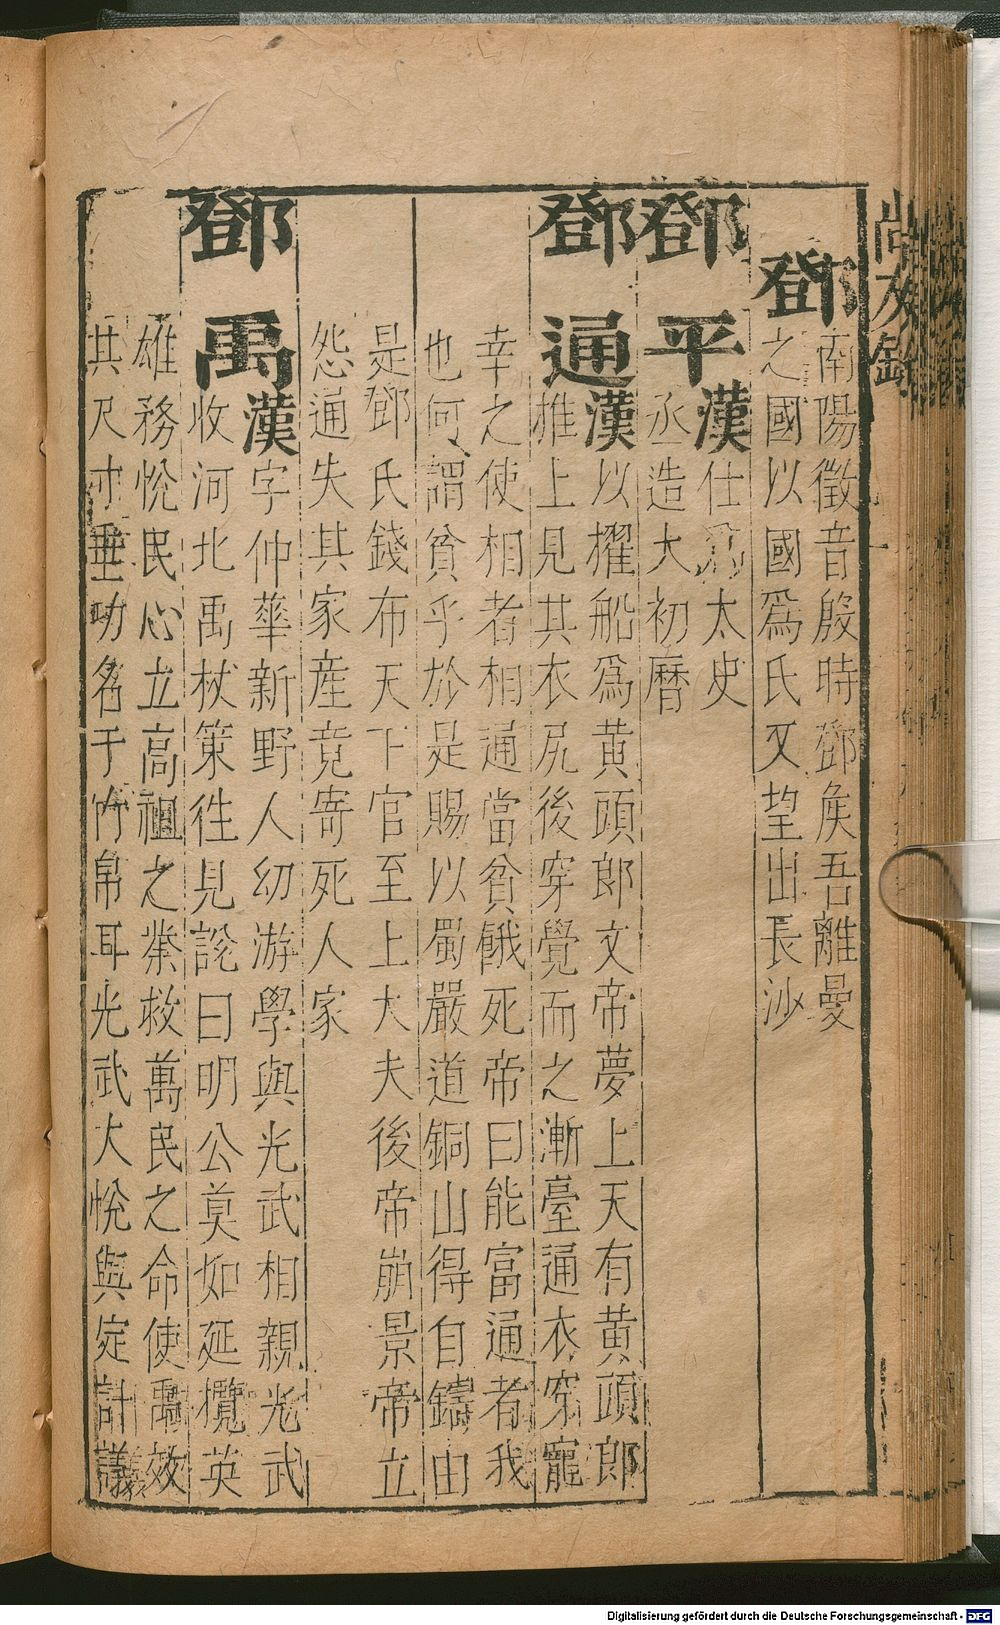 尚友錄
鄧
南陽徵音殷時鄧侯吾離曼
之國以國爲氏又望出長沙
鄧平
漢仕爲太史
丞造大初曆
鄧通
漢以擢船爲黃頭郎文帝夢上天有黃頭郎
推上見其衣尻後穿覺而之漸臺通衣穿寵
幸之使相者相通當貧餓死帝曰能富通者我
也何謂貧乎於是賜以蜀嚴道銅山得自鑄由
是鄧氏錢布天下官至上大夫後帝崩景帝立
怨通失其家産竟寄死人家
鄧禹
漢字仲華新野人幼游學與光武相親光武
收河北禹杖策往見說曰明公莫如延攬英
雄務悅民心立高祖之業救萬民之命使禹效
其尺寸垂功名于竹帛耳光武大悅與定計議
Digitalisierung gefördert durch die Deutsche Forschungsgemeinschaft - DFG